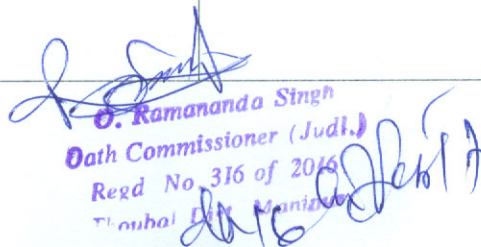 O. Ramananda Singh
Oath Commissioner (Judl.)
Regd No 316 of 2016
Thoubal Dist Manipur